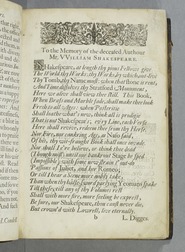 To the Memorie of the deceased Authour
Mr. WILLIAM SHAKESPEARE.
Shakespeare, at length thy pious fellowes give
The World thy Workes: thy Workes, by which, out-live
Thy Tombe, thy Name must: when that stone is rent,
And Time dissolves thy Stratford Moniment,
Here we alive shall view thee still. This Booke,
When Brasse and Marble fade, shall make thee looke
Fresh to all Ages: when Posteritie
Shall loath what's new, thinke all is prodigie
That is not Shake-speares; ev'ry Line, each Verse
Here shall revive, redeeme thee from thy Herse.
Nor Fire, nor cankring Age, as Naso said,
Of his, thy wit-fraught Booke shall once invade.
Nor shall I e're beleeve, or thinke thee dead
(Though mist) untill our bankrout Stage be sped
(Impossible) with some new straine t'out-do
Passions of Juliet, and her Romeo;
Or till I heare a Scene more nobly take,
Then when thy half-Sword parlying Romans spake.
Till these, till any of thy Volumes rest
Shall with more fire, more feeling be exprest,
Be sure, our Shake-speare, thou canst never dye,
But crown'd with Lawrell, live eternally.
L. Digges.